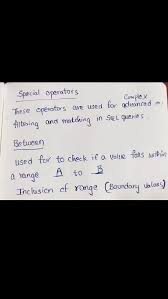 Special operators
Complex
These operators are used for advanced
filtering and matching in SQL queries.
Between
used for to check if a value falls within
a range A to B
Inclusion of range (Boundary values)